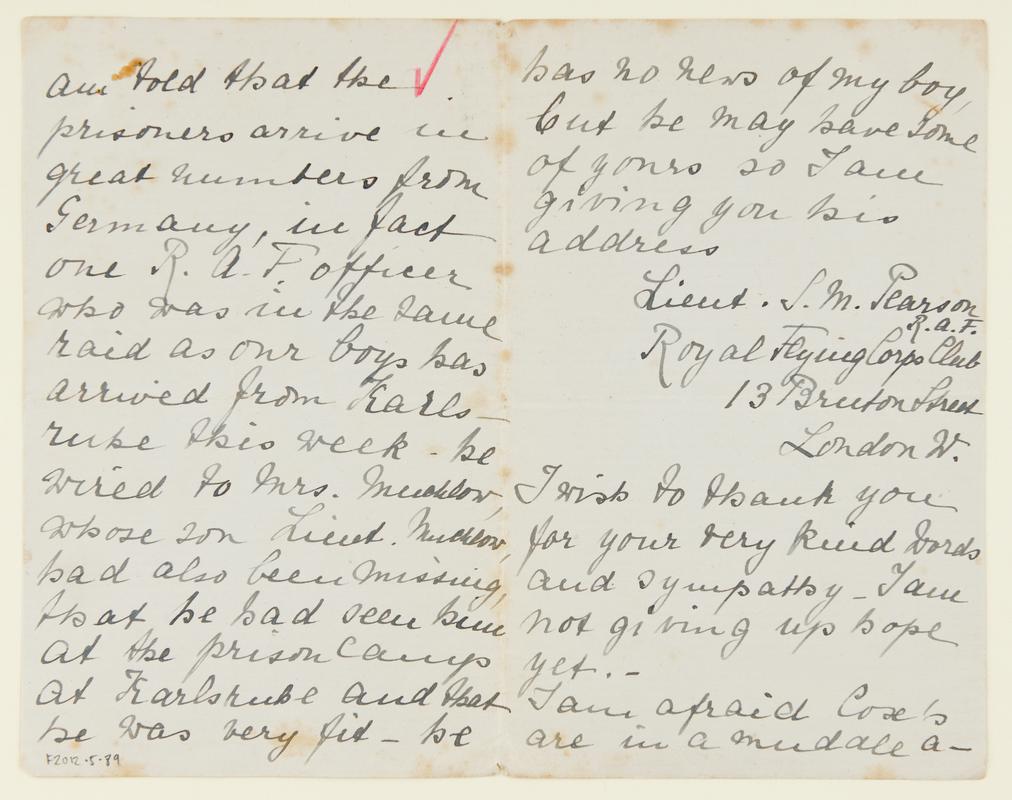 am told that the
prisoners arrive in
great numbers from
Germany, in fact
one R. A. F officer
who was in the same
raid as our boys has
arrived from Karls-
ruhe this week - he
wired to Mrs. Mucklow,
whose son Lieut. Mucklow,
had also been missing,
that he had seen him
at the prison Camp
at Karlsruhe and that
he was very fit - he
F2012.5.89
has no news of my boy,
but he may have some
of yours so I am
giving you his
address
Lieut. S. M. Pearson
R. A. F.
Royal Flying Corps Club
13 Bruton Street
London W.
I wish to thank you
for your very kind words
and sympathy - I am
not giving up hope
yet. -
I am afraid Cox's
are in a muddle a-